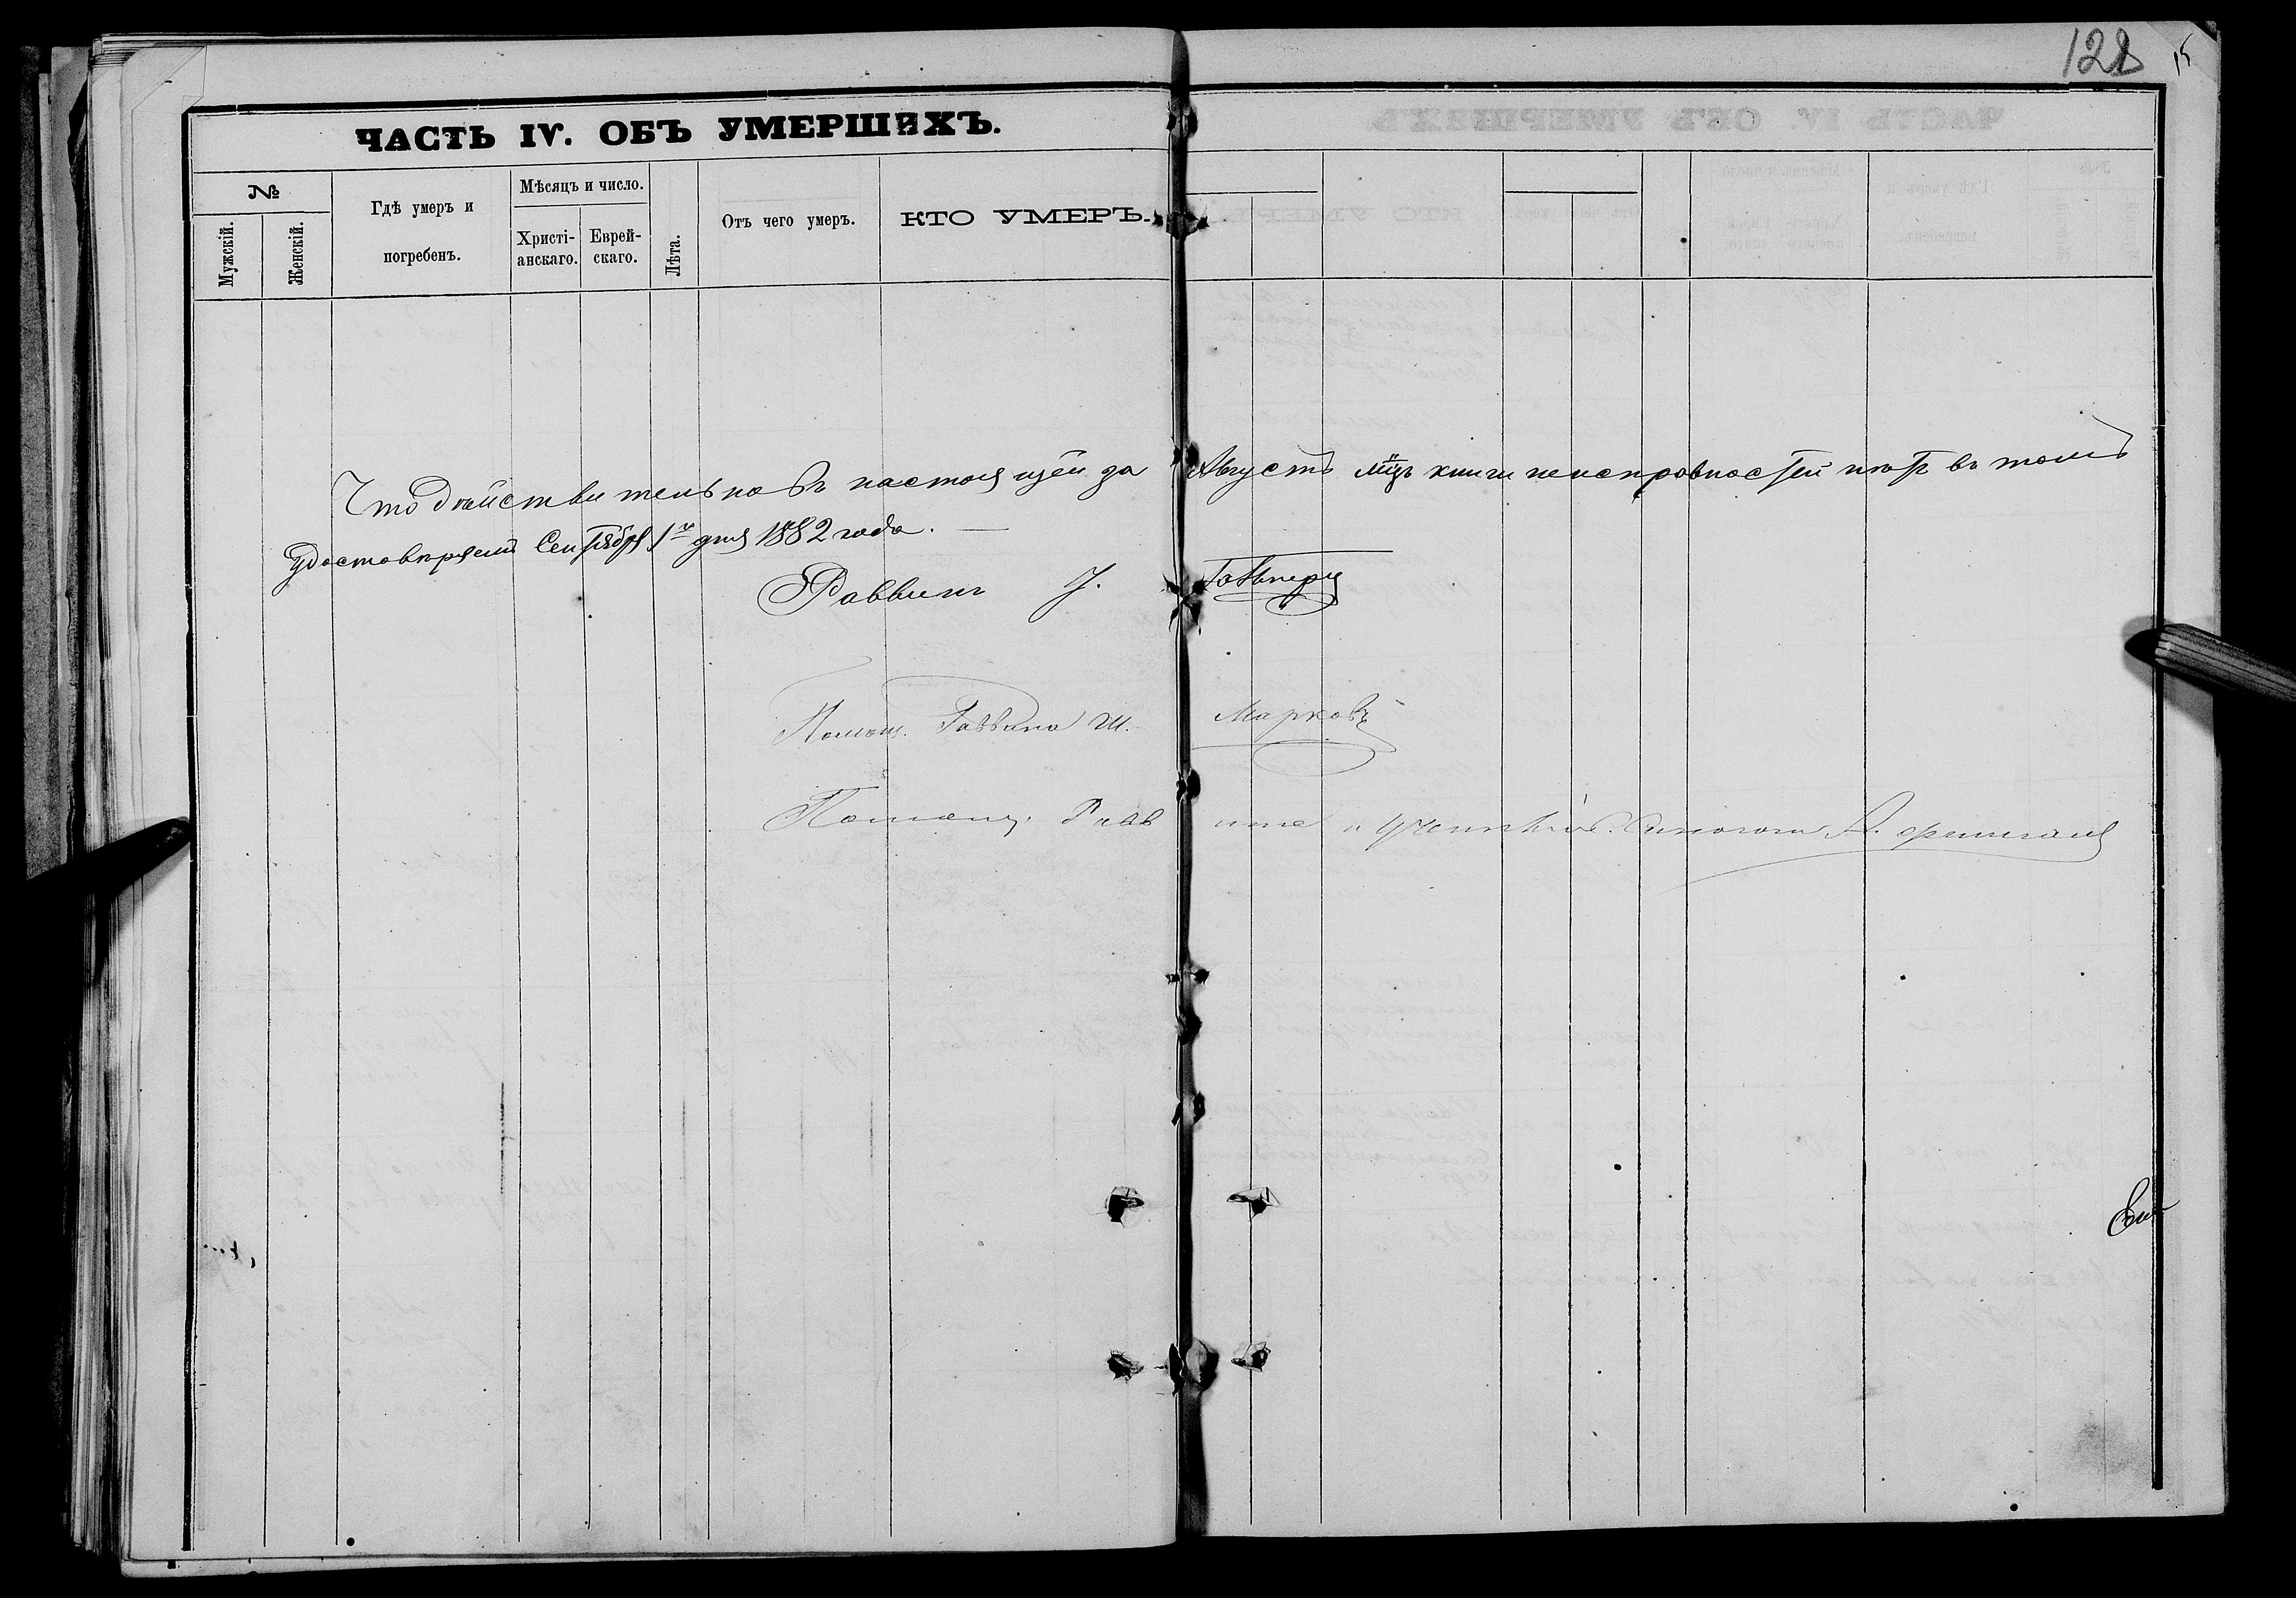 128
15
ЧАСТЬ IV. ОБЪ УМЕРШИХЪ.
№
Мужскій.
Женскій.
Гдѣ умеръ и
погребенъ.
Мѣсяцъ и число.
Христі-
анскаго.
Еврей-
скаго.
Лѣта.
Отъ чего умеръ.
КТО УМЕРЪ.
Что дѣйствительно въ настоящей за Августъ мцъ книги неисправностей нѣтъ въ томъ
удостовѣряемъ Сентября 1го дня 1882 года.
Раввинъ
Помощ. Раввина Ш. Марковъ
Помощ. Раввина и